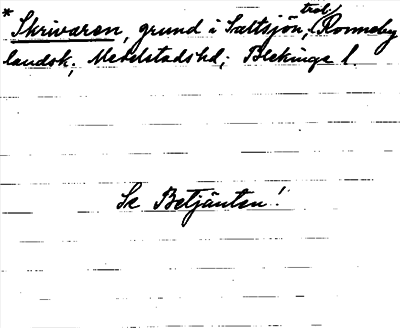 * Skrivaren, grund i Saltsjön, trol. Ronneby
landsk., Medelstads hd, Blekinge l.
Se Betjänten!